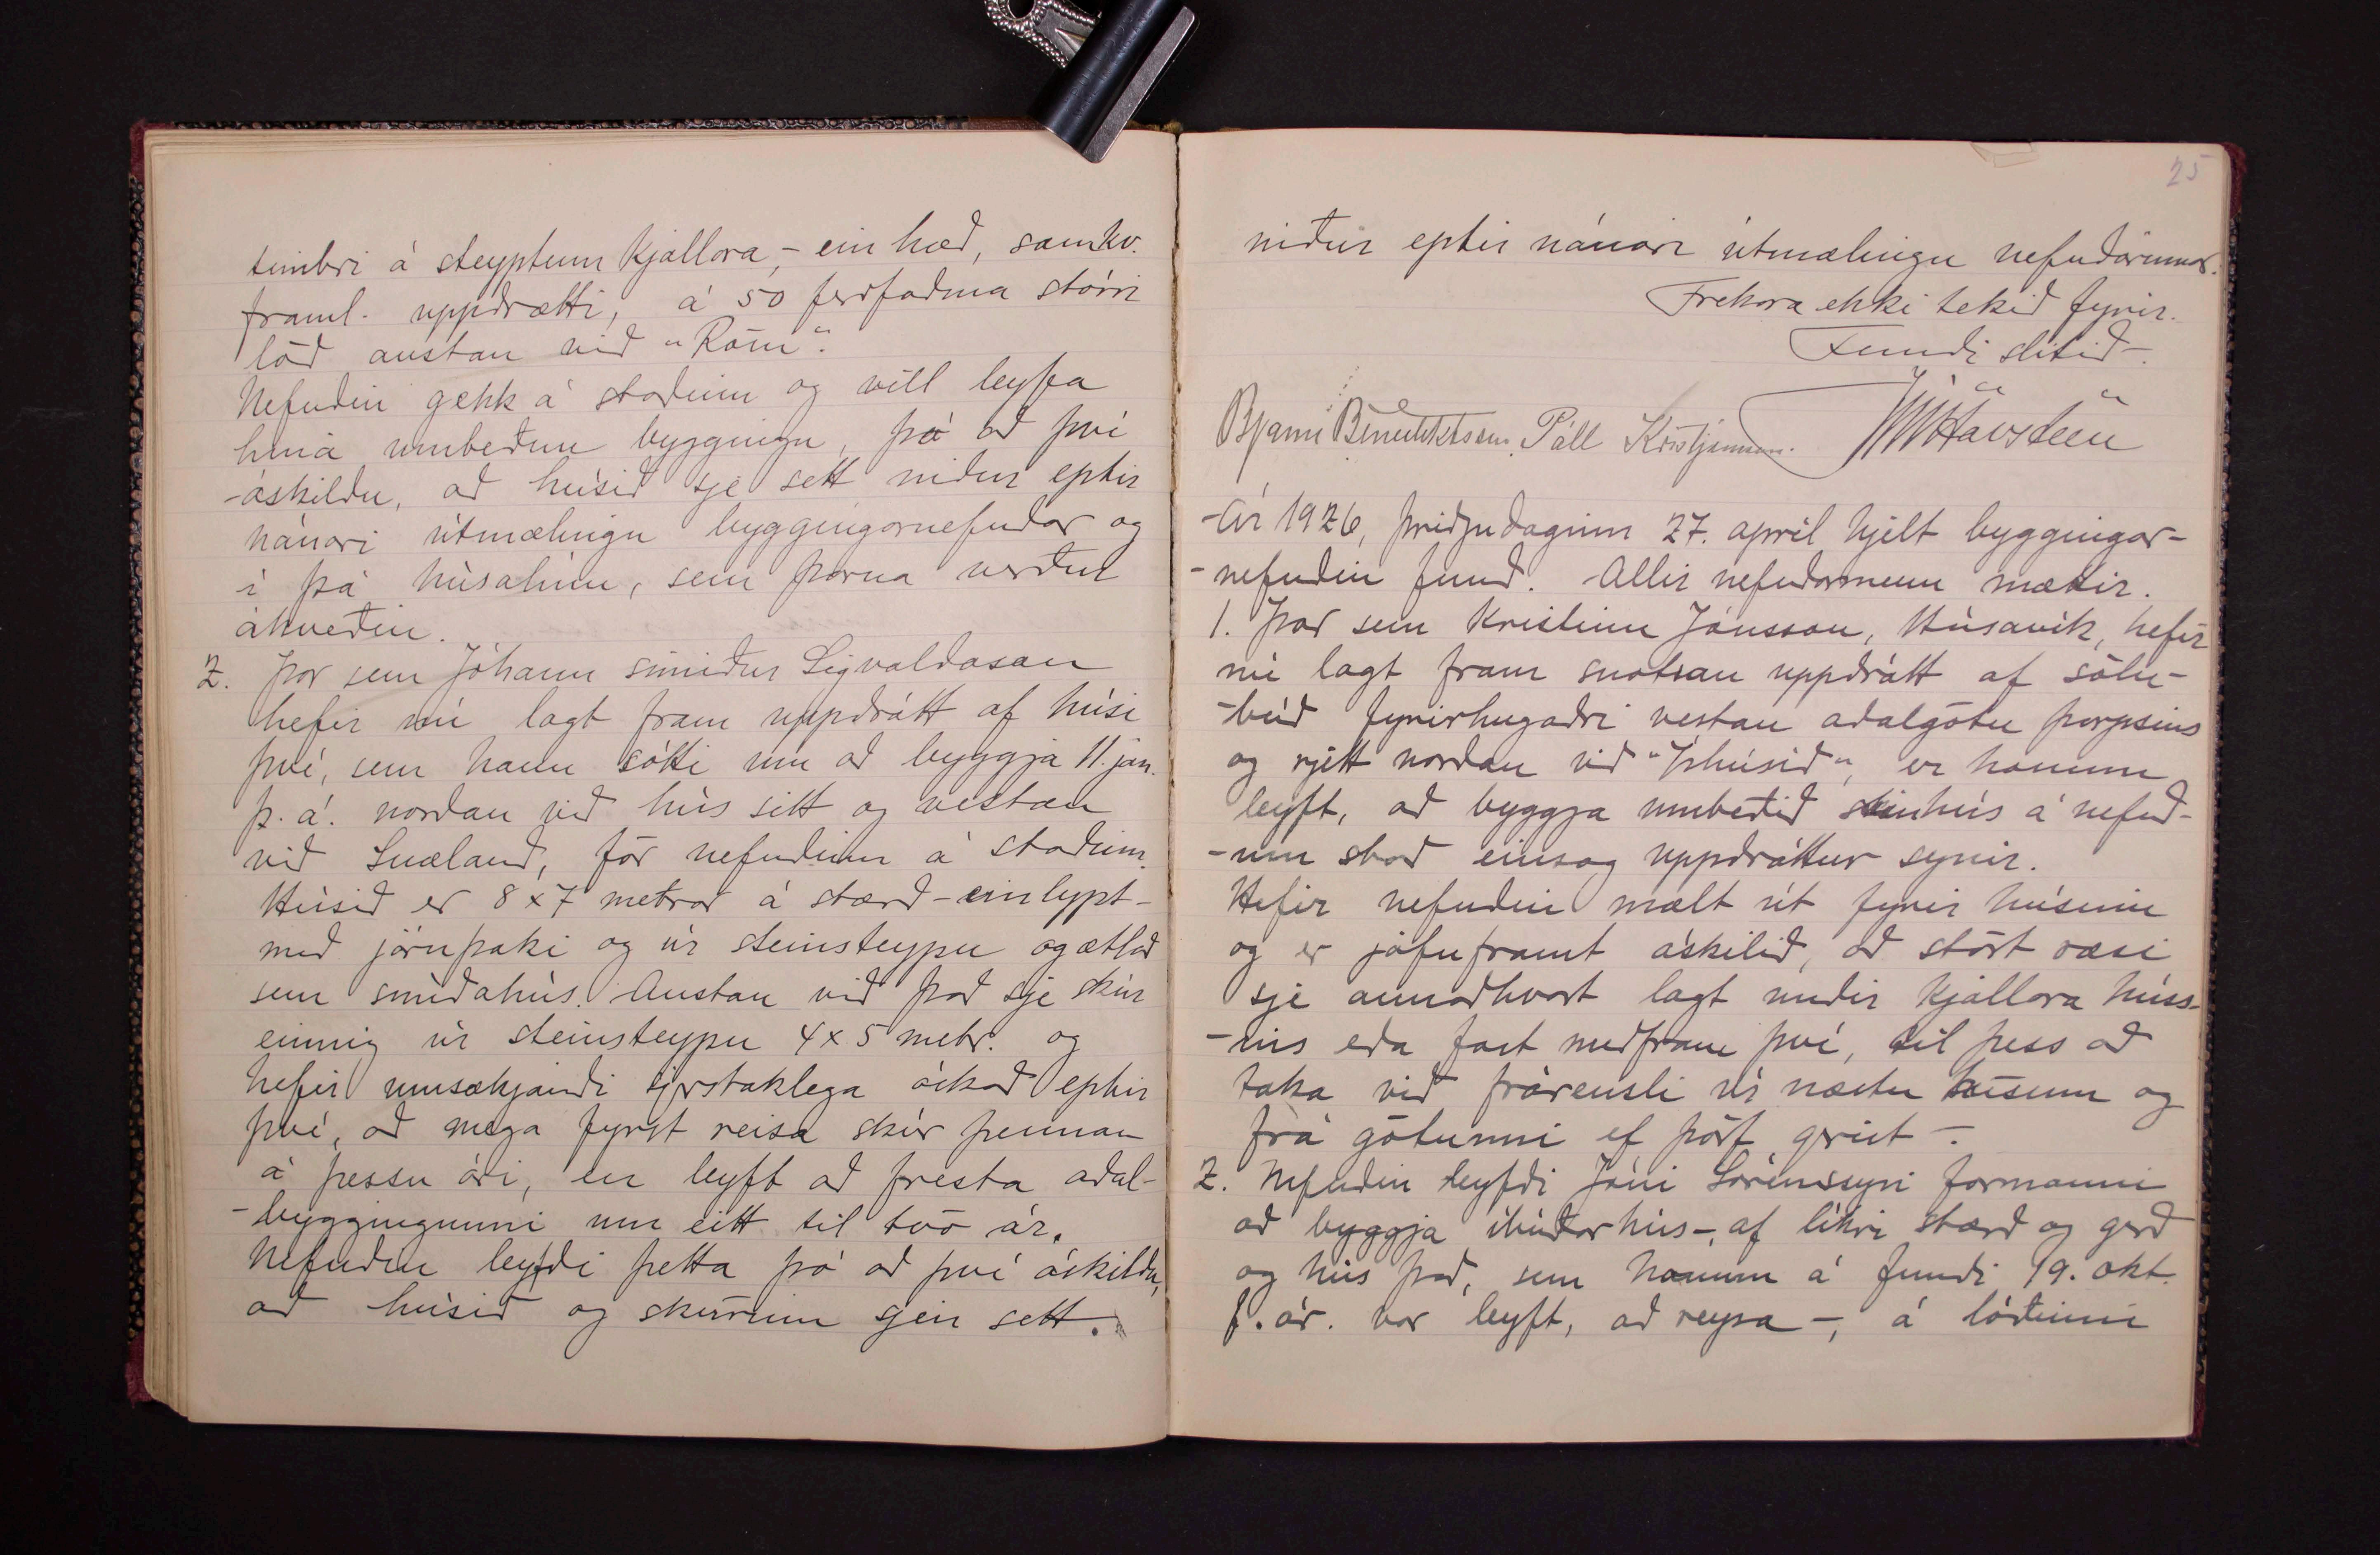 timbri á steyptum kjallara, - ein hæð, samkv.
framl. uppdrætti, á 50 ferfaðma stórri
lóð austan við "Róm".
Nefndin gekk á staðinn og vill leyfa
hina umbeðnu byggingu, þó að því
áskildu, að húsið sje sett niður eptir
nánari útmælingu byggingarnefndar og
í þá húsalínu, sem þarna verður
ákveðin.
2. Þar sem Jóhann smiður Sigvaldason
hefir nú lagt fram uppdrátt af húsi
því, sem hann sótti um að byggja 11. jan.
þ. á. norðan við hús sitt og vestan
við Snæland, fór nefndin á staðinn.
Húsið er 8 x 7 metrar á stærð - einlypt -
með járnþaki og úr steinsteypu og ætlað
sem smíðahús. Austan við það sje skúr
einnig úr steinsteypu 4 x 5 metr. og
hefir umsækjandi sjerstaklega óskað eptir
því, að mega fyrst reisa skúr þennan
á þessu ári, en leyft að fresta aðal-
-byggingunni um eitt til tvö ár.
Nefndin leyfði þetta þó að því áskildu,
að húsið og skúrinn sjeu sett.
25
niður eptir nánari útmælingu nefndarinnar.
Frekara ekki tekið fyrir.
Fundi slitið -.
Bjarni Benediktsson. Páll Kristjánsson. JVHavsteen
Ár 1926, þriðjudaginn 27. apríl hjelt byggingar-
-nefndin fund. Allir nefndarmenn mættir.
1. Þar sem Kristinn Jónsson, Húsavík, hefir
nú lagt fram snotran uppdrátt af sölu-
-búð fyrirhugaðri vestan aðalgötu þorpsins
og rjett norðan við "Íshúsið", er honum
leyft, að byggja umbeðið steinhús á nefnd-
-um stað einsog uppdráttur sýnir.
Hefir nefndin mælt út fyrir húsinu
og er jafnframt áskilið, að stórt ræsi
sje annaðhvort lagt undir kjallara húss-
-ins eða fast meðfram því, til þess að
taka við frárensli úr næstu húsum og
frá götunni ef þörf gerist -.
2. Nefndin leyfði Jóni Sörenssyni formanni
að byggja íbúðarhús -, af líkri stærð og gerð
og hús það, sem honum á fundi 19. okt.
f. ár. var leyft, að reysa -, á lóðinni